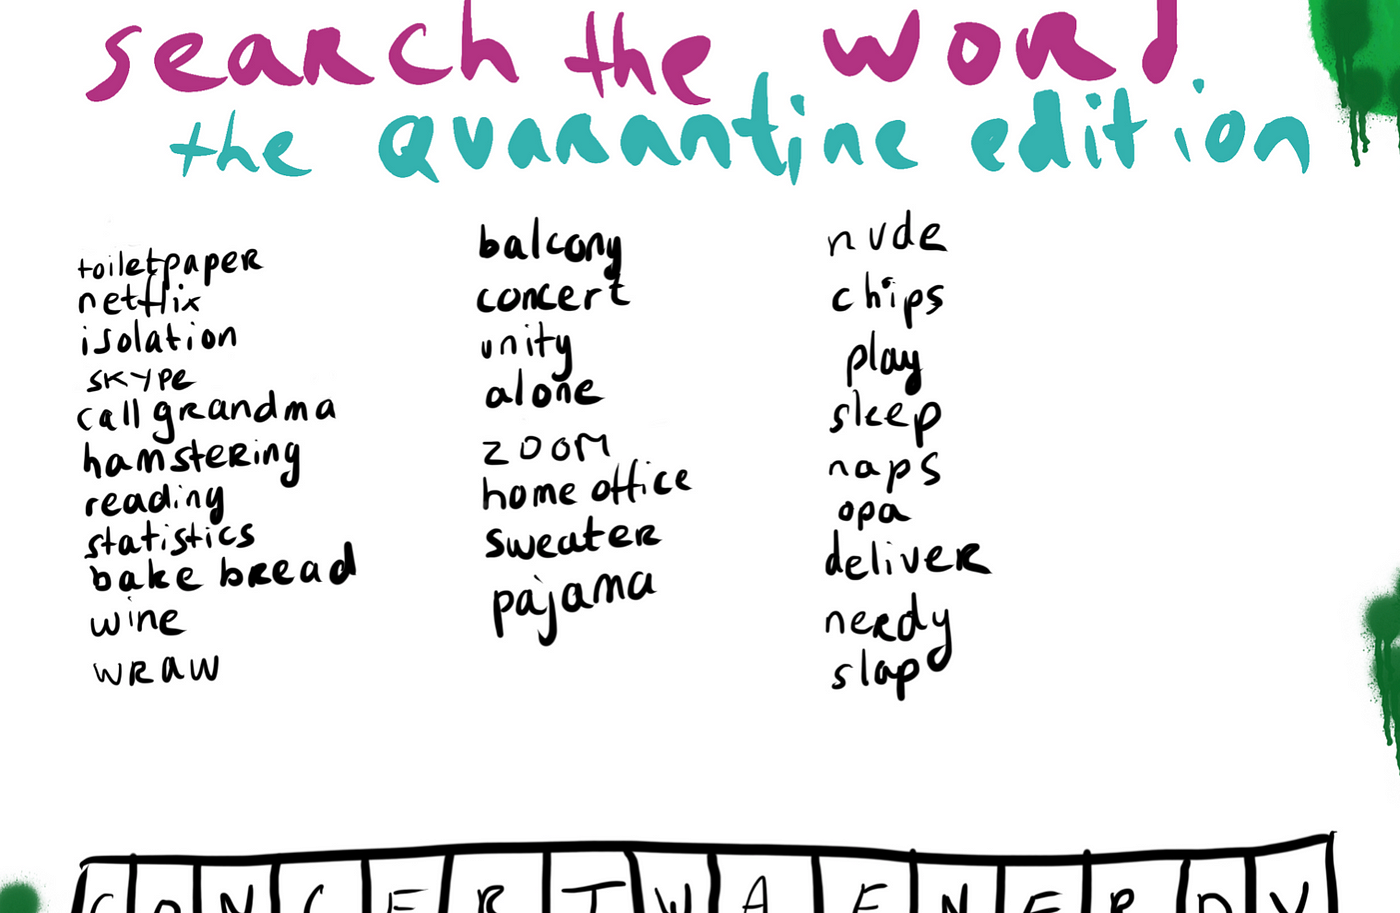 search the word
the quarantine edition
toiletpaper
netflix
isolation
skype
call grandma
hamstering
reading
statistics
bake bread
wine
wraw
balcony
concert
unity
alone
zoom
home office
sweater
pajama
nude
chips
play
sleep
naps
opa
deliver
nerdy
slap
C O N C E R T W A E N E R D Y